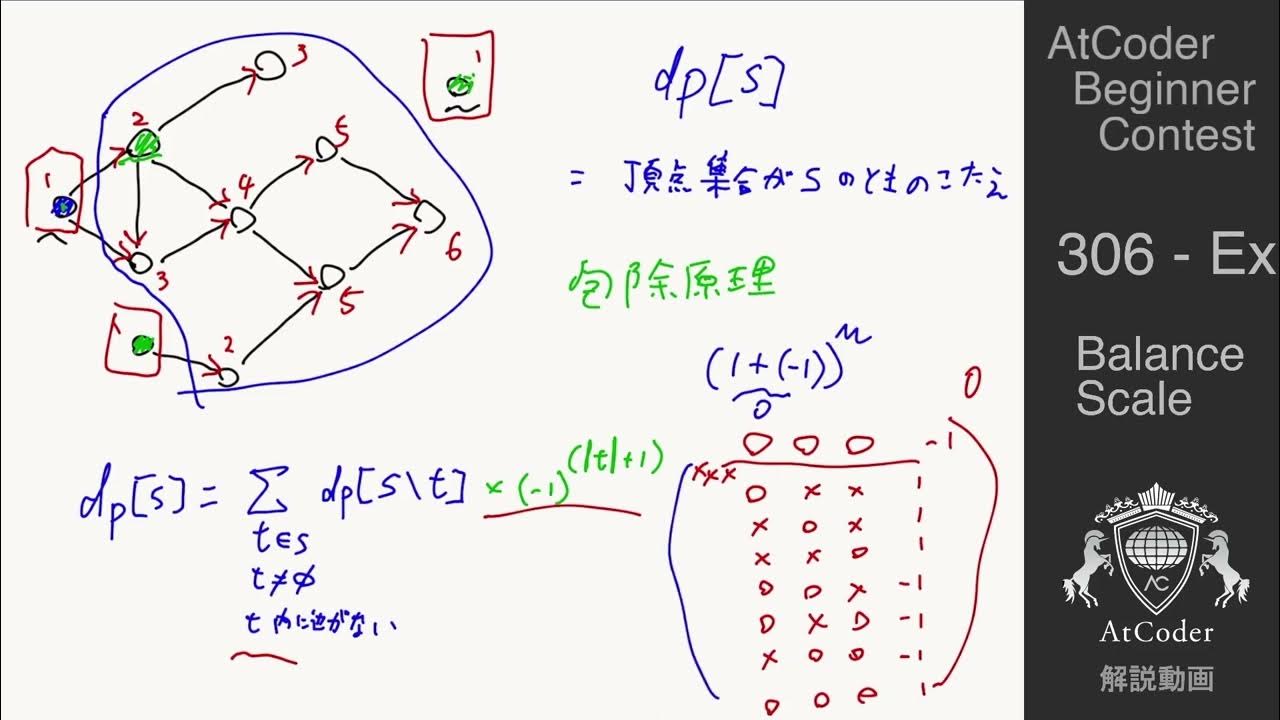 dp[S]
= 頂点集合がSのときのこたえ
包除原理
(1+(-1))^n
0
0
dp[S] = Σ dp[S\t] × (-1)^(|t|+1)
t∈S
t≠∅
t内に辺がない
○ ○ ○ -1
×××
○ × × 1
× ○ × 1
× × ○ 1
○ ○ × -1
○ × ○ -1
× ○ ○ -1
○ ○ ○ 1
3
1
2
5
1
4
3
6
5
1
2
AtCoder
Beginner
Contest
306 - Ex
Balance
Scale
AC
AtCoder
解説動画